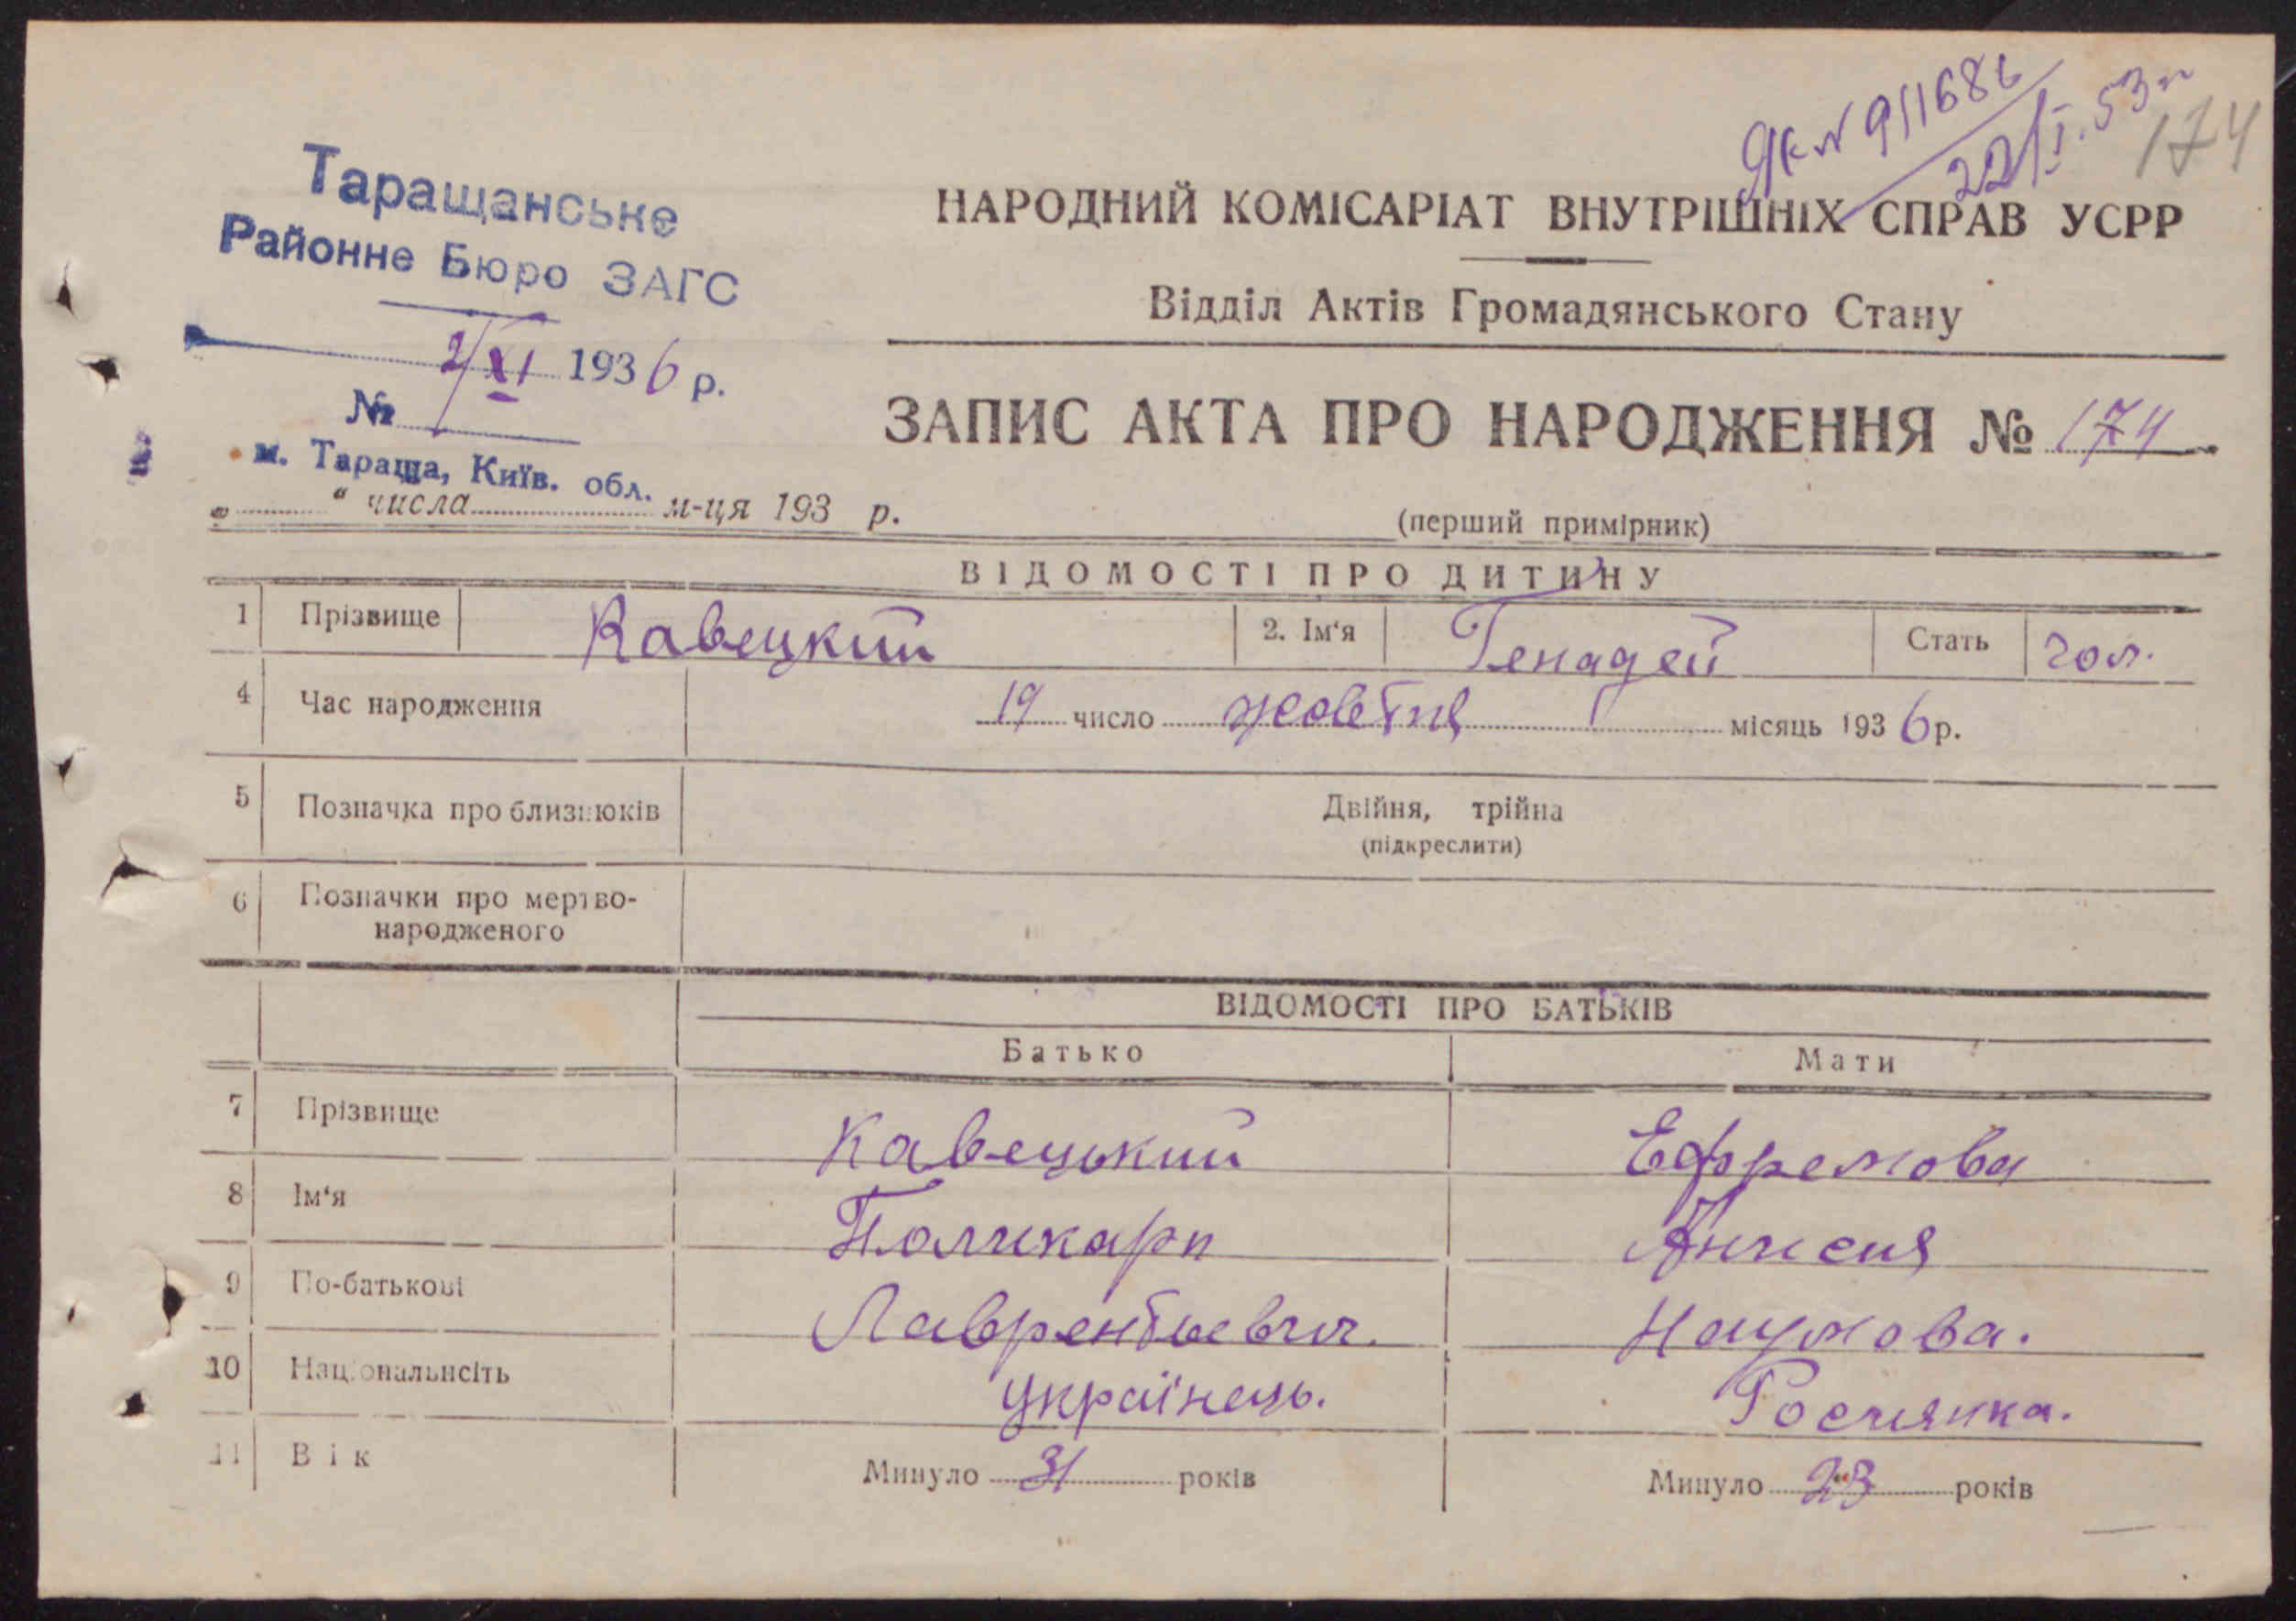 ЯК № 911686
22/I. 53 г
174
Таращанське
Районне Бюро ЗАГС
2/XI 1936 р.
№
м. Тараща, Київ. обл.
НАРОДНИЙ КОМІСАРІАТ ВНУТРІШНІХ СПРАВ УСРР
Відділ Актів Громадянського Стану
ЗАПИС АКТА ПРО НАРОДЖЕННЯ № 174
„ “ числа м-ця 193 р.
(перший примірник)
ВІДОМОСТІ ПРО ДИТИНУ
1 Прізвище Кавецкий 2. Ім‘я Генадей Стать чол.
4 Час народження 19 число жовтня місяць 1936 р.
5 Позначка про близнюків Двійня, трійна
(підкреслити)
6 Позначки про мертво-
народженого
ВІДОМОСТІ ПРО БАТЬКІВ
Батько Мати
7 Прізвище Кавецький Ефремова
8 Ім‘я Полікарп Анисия
9 По-батькові Лаврентьевич. Наумова.
10 Національнсіть Українець. Росиянка.
11 Вік Минуло 31 років Минуло 23 років